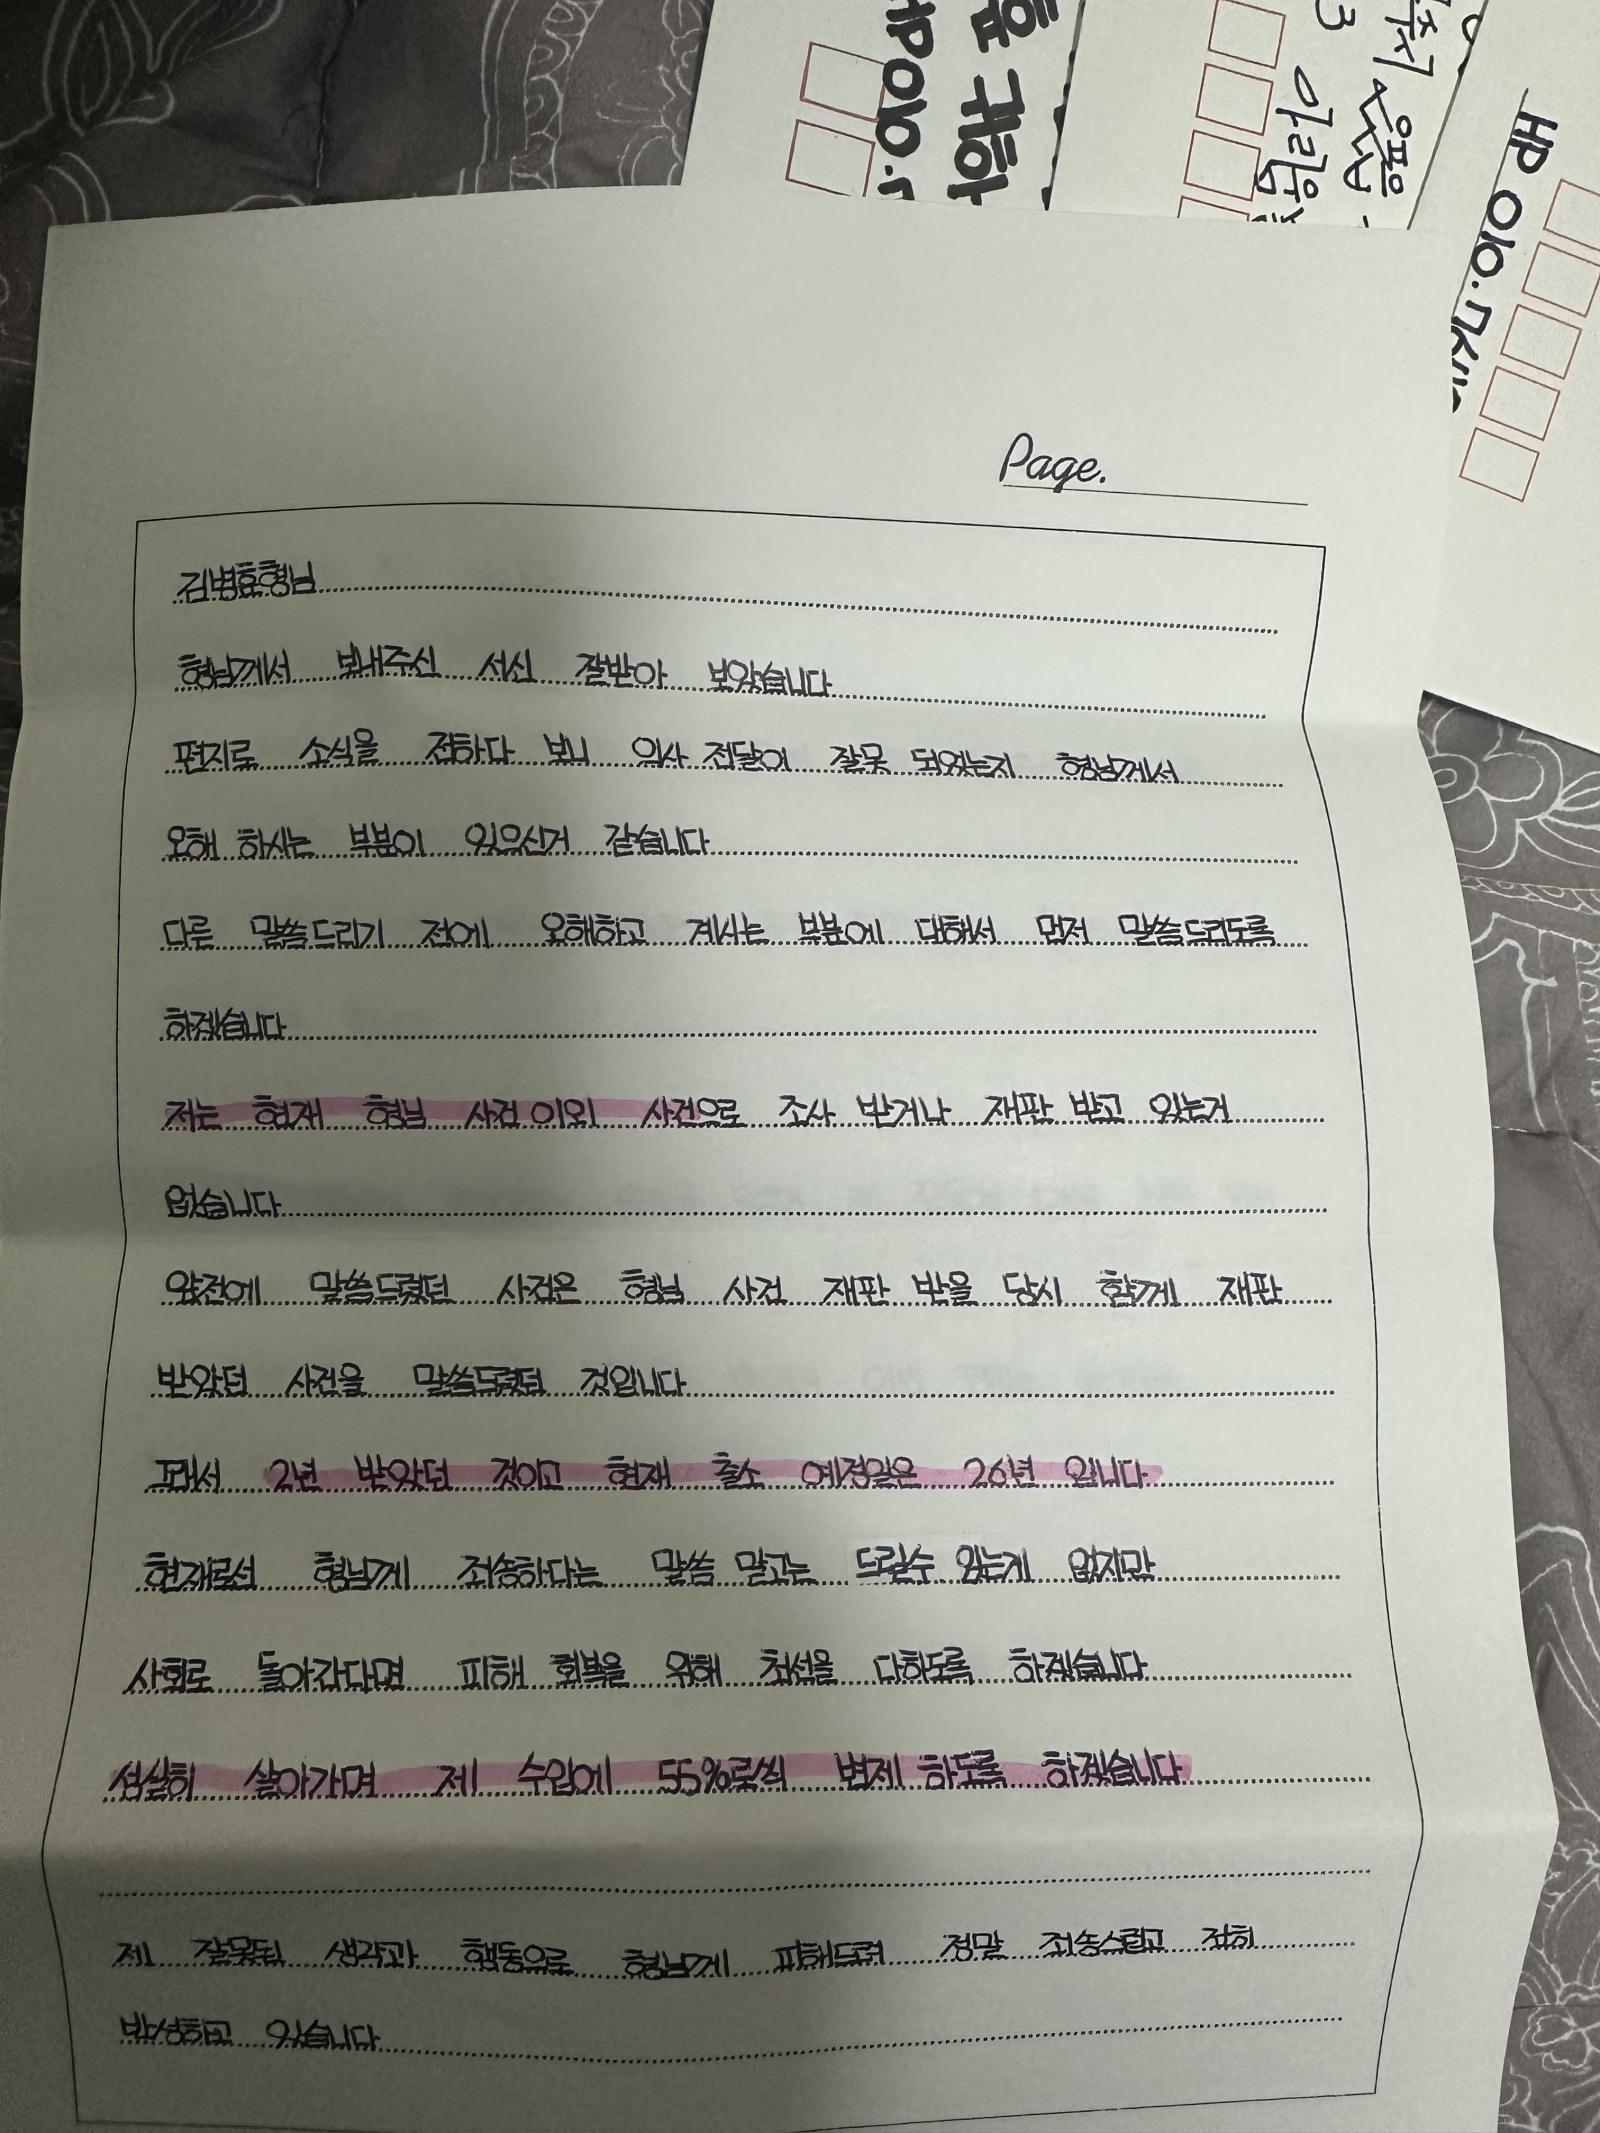 HP 010.
주시 은평
3 아리움
HP 010.
Page.
김병효형님
형님께서 보내주신 서신 잘받아 보았습니다
편지로 소식을 전하다 보니 의사 전달이 잘못 되었는지 형님께서
오해 하시는 부분이 있으신거 같습니다
다른 말씀드리기 전에 오해하고 계시는 부분에 대해서 먼저 말씀드리도록
하겠습니다
저는 현재 형님 사건 이외 사건으로 조사 받거나 재판 받고 있는거
없습니다
앞전에 말씀드렸던 사건은 형님 사건 재판 받을 당시 함께 재판
받았던 사건을 말씀드렸던 것입니다
그래서 2년 받았던 것이고 현재 출소 예정일은 26년 입니다
현재로선 형님께 죄송하다는 말씀 말고는 드릴수 있는게 없지만
사회로 돌아간다면 피해 회복을 위해 최선을 다하도록 하겠습니다
성실히 살아가며 제 수입에 55%로씩 변제 하도록 하겠습니다
제 잘못된 생각과 행동으로 형님께 피해드려 정말 죄송스럽고 전히
반성하고 있습니다